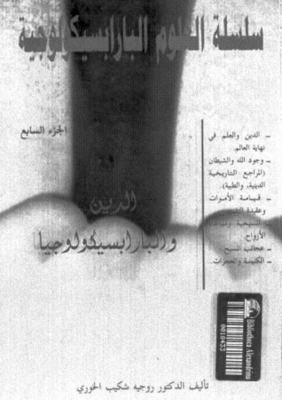 سلسلة العلوم البارابسيكولوجية
الجزء السابع
ـ الدين والعلم في
نهاية العالم.
ـ وجود الله والشيطان
(المراجع التاريخية
الدينية، والطبية).
ـ قيامة الأموات
وعقيدة
الأرواح.
ـ عجائب المسيح
ـ الكنيسة والمعجزات.
الدين
والبارابسيكولوجيا
Bibliotheca Alexandrina
تأليف الدكتور روجيه شكيب الخوري